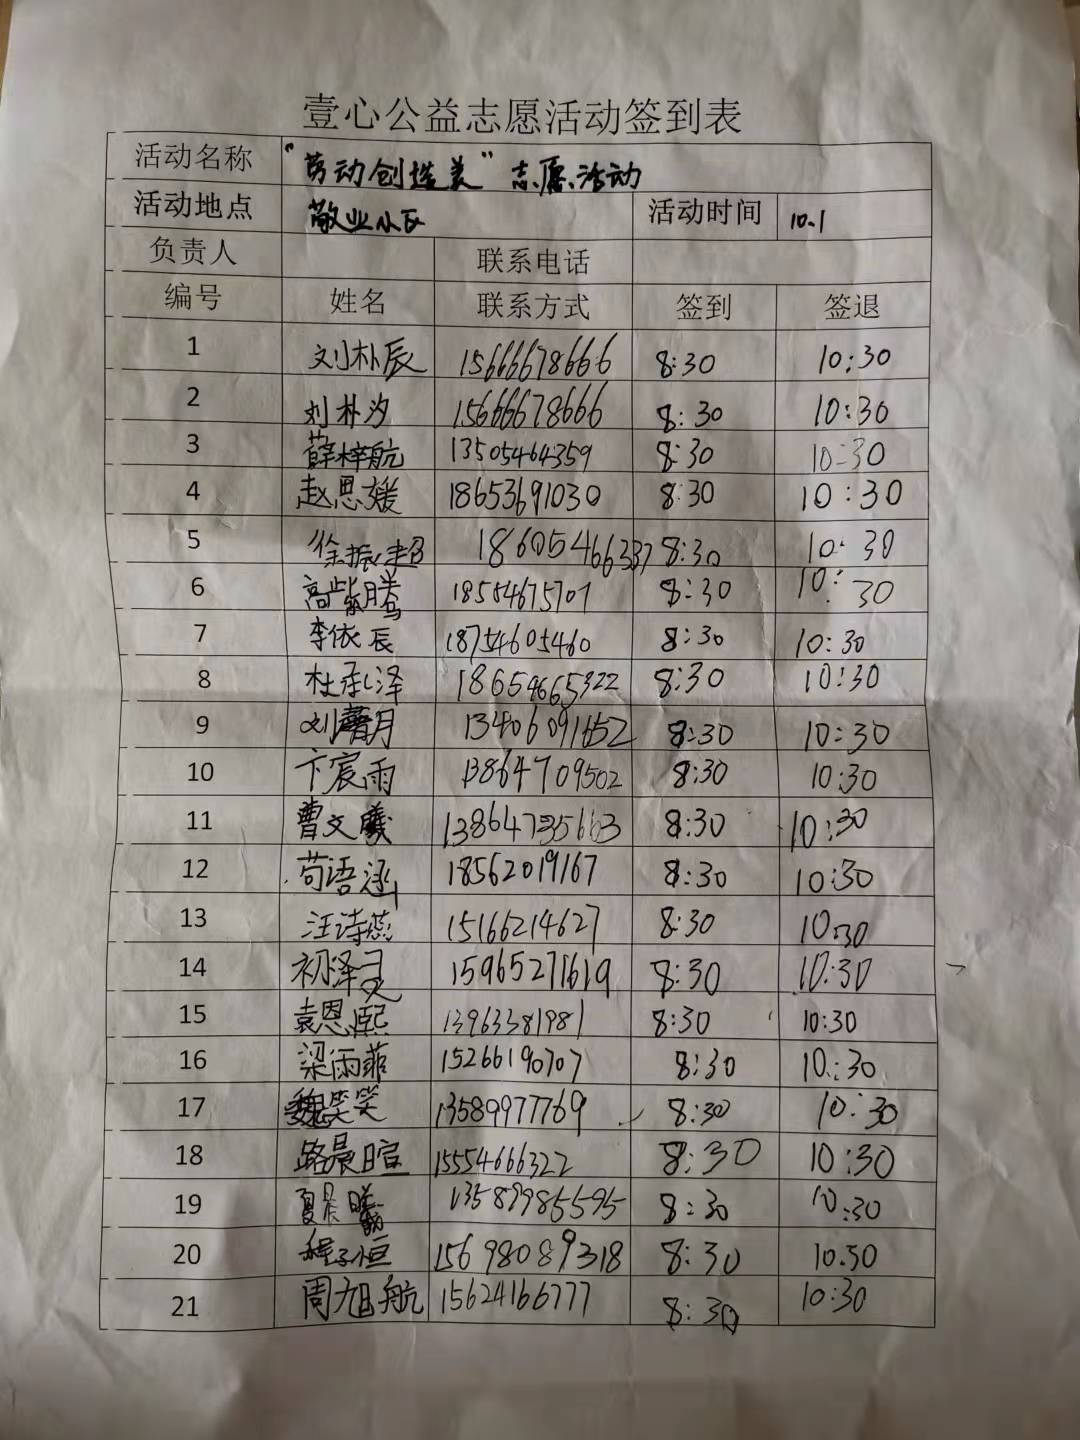 壹心公益志愿活动签到表
活动名称 "劳动创造美"志愿活动
活动地点 敬业小区 活动时间 10.1
负责人 联系电话
编号 姓名 联系方式 签到 签退
1 刘朴辰 15666678666 8:30 10:30
2 刘朴汐 15666678666 8:30 10:30
3 薛梓航 13505464359 8:30 10:30
4 赵思媛 18653691030 8:30 10:30
5 徐振超 18605466337 8:30 10:30
6 高紫腾 18554675707 8:30 10:30
7 李依辰 18754605460 8:30 10:30
8 杜承泽 18654665322 8:30 10:30
9 刘蕾月 13406091652 8:30 10:30
10 卞宸雨 13864709502 8:30 10:30
11 曹文曦 13864735663 8:30 10:30
12 苟语涵 18562019167 8:30 10:30
13 汪诗蕊 15166214627 8:30 10:30
14 初泽 15965271619 8:30 10:30
15 袁恩熙 13963381981 8:30 10:30
16 梁雨菲 15266190707 8:30 10:30
17 魏笑笑 13589977769 8:30 10:30
18 路晨暄 15554666322 8:30 10:30
19 夏晨曦 13589985595 8:30 10:30
20 程子恒 15698089318 8:30 10.30
21 周旭航 15624166777 8:30 10:30